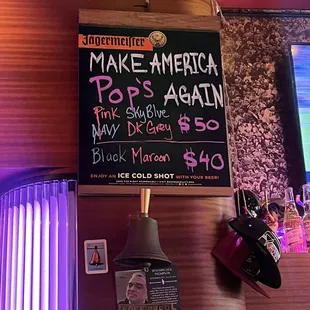 Jägermeister
MAKE AMERICA
Pop's AGAIN
Pink SkyBlue
NAVY DK Grey $50
Black Maroon $40
ENJOY AN ICE COLD SHOT WITH YOUR BEER!